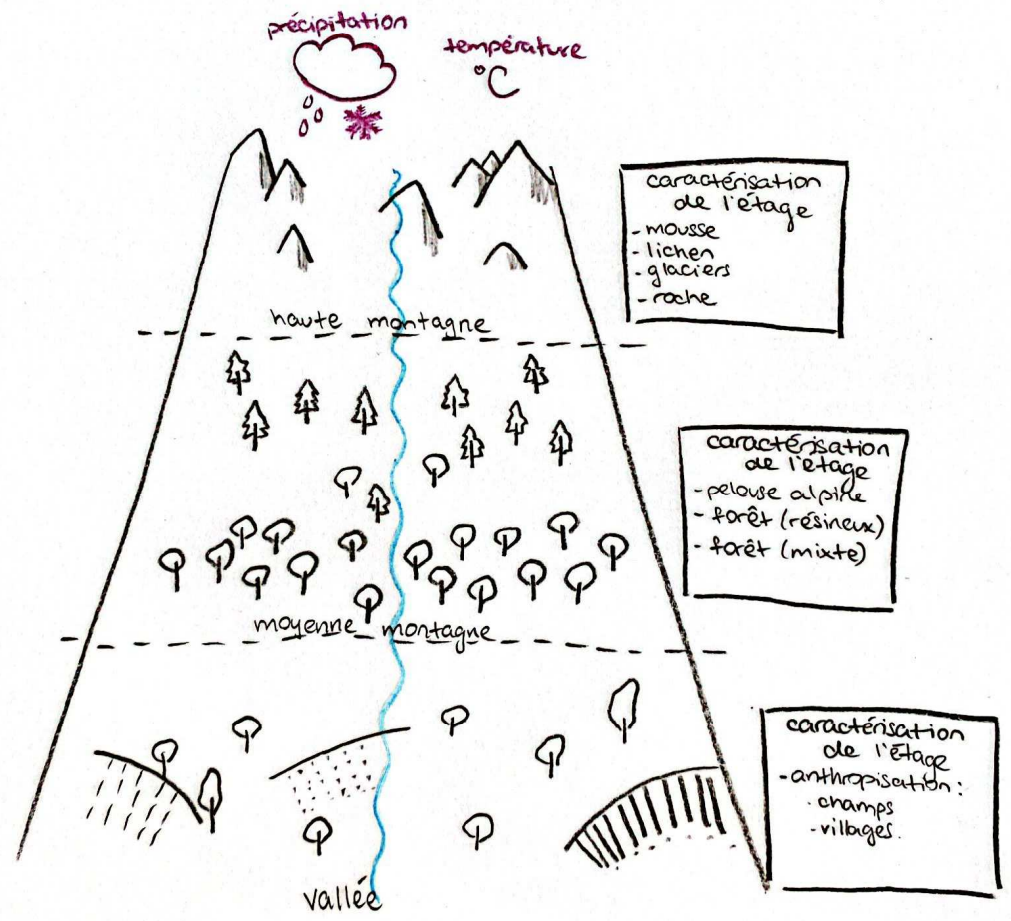 précipitation
température
°C
caractérisation
de l'étage
- mousse
- lichen
- glaciers
- roche
haute montagne
caractérisation
de l'étage
- pelouse alpine
- forêt (résineux)
- forêt (mixte)
moyenne montagne
caractérisation
de l'étage
- anthropisation :
- champs
- villages.
vallée